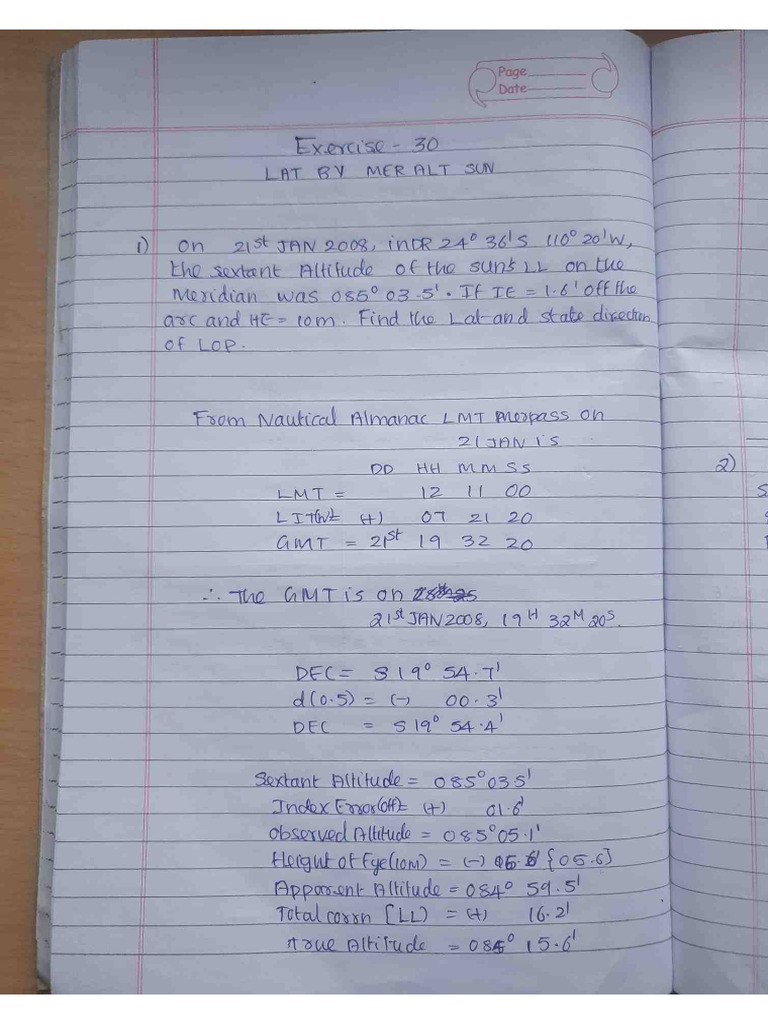 Page
Date
Exercise - 30
LAT BY MER ALT SUN
1) On 21st JAN 2008, in DR 24° 36'S 110° 20'W,
the sextant Altitude of the sun's LL on the
Meridian was 085° 03.5'. If IE = 1.6' off the
arc and HE = 10m. Find the Lat and state direction
of LOP.
From Nautical Almanac LMT Merpass on
21 JAN is
DD HH MM SS
2)
LMT = 12 11 00
LIT(W)= (+) 07 21 20
GMT = 21st 19 32 20
∴ The GMT is on
21st JAN 2008, 19H 32M 20S.
DEC = S 19° 54.7'
d(0.5) = (-) 00.3'
DEC = S 19° 54.4'
Sextant Altitude = 085° 03.5'
Index Error(off)= (+) 01.6'
Observed Altitude = 085° 05.1'
Height of Eye(10M) = (-) {05.6}
Apparent Altitude = 084° 59.5'
Total corrn [LL) = (+) 16.2'
True Altitude = 085° 15.6'